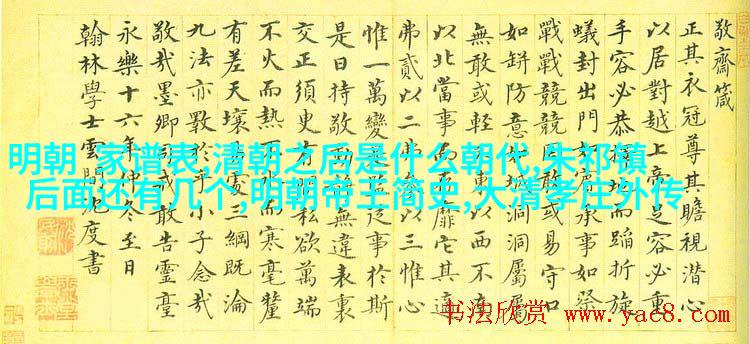 敬齋箴
正其衣冠尊其瞻視潛心
以居對越上帝足容必重
手容必恭地而蹈折旋
蟻封出門如承事如祭
戰戰兢兢敢或易守口
如缾防意如城洞洞屬屬
無敢或輕以西不南
以北當事靡它其適
弗貳以二三惟心
惟一萬變事於斯
是日持敬無違表裏
交正須臾有私欲萬端
不火而熱而寒毫釐
有差天壤三綱既淪
九法亦斁乎小子念哉
敬哉墨卿戒敢告靈臺
永樂十六年仲冬至日
翰林學士雲間沈度書
明朝 家谱表,清朝之后是什么朝代,朱祁镇
后面还有几个,明朝帝王简史,大清孝庄外传
书法欣赏 www.yac8.com